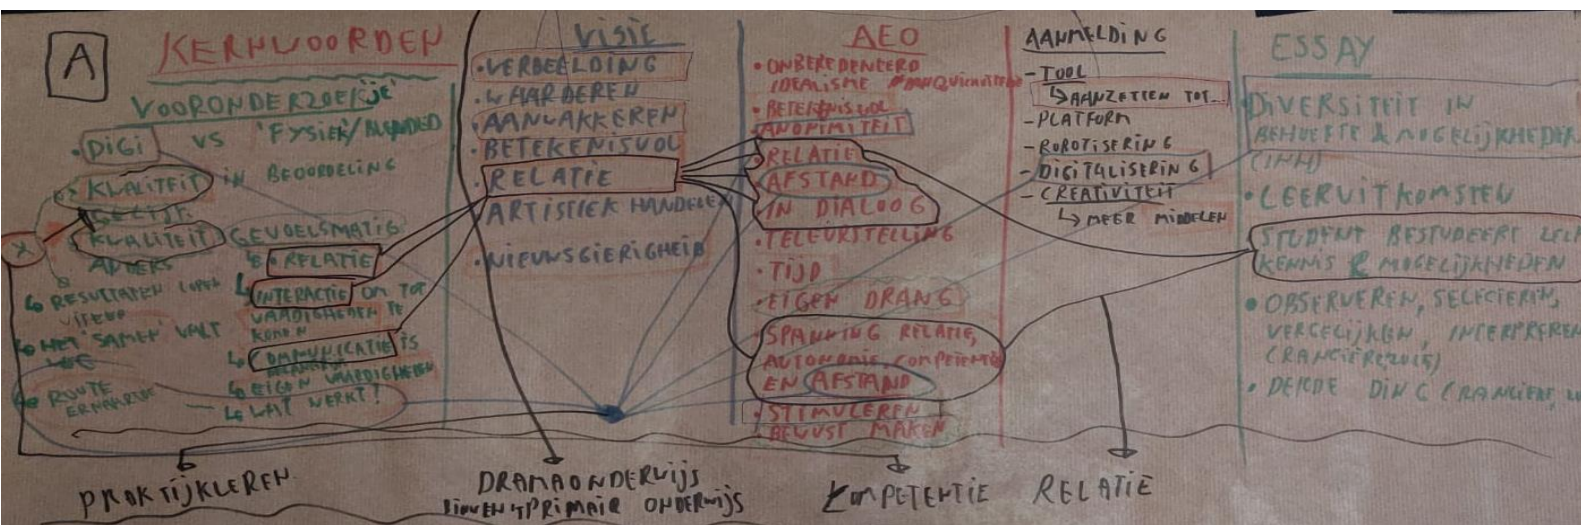 A
KERNWOORDEN
VOORONDERZOEKJE
• DIGI VS 'FYSIEK'/BLENDED
KWALITEIT IN BEOORDELING
GELIJK
KWALITEIT
ANDERS
&
RESULTATEN LOPEN
HET 'SAMEN' VALT
WEG
ROUTE
ERNAARTOE
GEVOELSMATIG
• RELATIE
INTERACTIE OM TOT
VAARDIGHEDEN TE
KOMEN
COMMUNICATIE IS
BELANGRIJK
EIGEN VAARDIGHEDEN
WAT WERKT?
VISIE
• VERBEELDING
• WAARDEREN
• AANWAKKEREN
• BETEKENISVOL
• RELATIE
ARTISTIEK HANDELEN
• NIEUWSGIERIGHEID
AEO
• ONBEREDENEERD
IDEALISME
• BETEKENISVOL
ANONIMITEIT
• RELATIE
AFSTAND
IN DIALOOG
• TELEURSTELLING
• TIJD
• EIGEN DRANG
• SPANNING RELATIE,
AUTONOMIE, COMPETENTIE
EN AFSTAND
• STIMULEREN
BEWUST MAKEN
AANMELDING
- TOOL
AANZETTEN TOT...
- PLATFORM
- ROBOTISERING
- DIGITALISERING
- CREATIVITEIT
MEER MIDDELEN
ESSAY
• DIVERSITEIT IN
BEHOEFTE & MOGELIJKHEDEN
(INH)
• LEERUITKOMSTEN
STUDENT BESTUDEERT ZELF
KENNIS & MOGELIJKHEDEN
• OBSERVEREN, SELECTEREN,
VERGELIJKEN, INTERPRETEREN
(RANCIÈRE, 2015)
• DERDE DING (RANCIÈRE,
PRAKTIJKLEREN
DRAMAONDERWIJS
BINNEN 'T PRIMAIR ONDERWIJS
COMPETENTIE
RELATIE